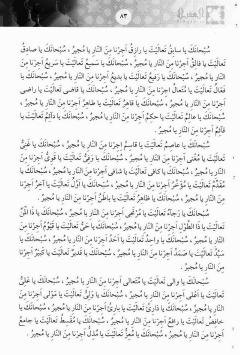 ٨٣
سُبْحَانَكَ يا سابِقُ تَعالَيْتَ يا رازِقُ اَجِرْنا مِنَ النّارِ يا مُجيرُ ، سُبْحانَكَ يا صادِقُ
تَعالَيْتَ يا فالِقُ اَجِرْنا مِنَ النّارِ يا مُجيرُ ، سُبْحانَكَ يا سَميعُ تَعالَيْتَ يا سَريعُ اَجِرْنا مِنَ
النّارِ يا مُجيرُ ، سُبْحانَكَ يا رَفيعُ تَعالَيْتَ يا بَديعُ اَجِرْنا مِنَ النّارِ يا مُجيرُ ، سُبْحانَكَ يا
فَعّالُ تَعالَيْتَ يا مُتَعالُ اَجِرْنا مِنَ النّارِ يا مُجيرُ ، سُبْحانَكَ يا قاضي تَعالَيْتَ يا راضي
اَجِرْنا مِنَ النّارِ يا مُجيرُ ، سُبْحانَكَ يا قاهِرُ تَعالَيْتَ يا طاهِرُ اَجِرْنا مِنَ النّارِ يا مُجيرُ ،
سُبْحانَكَ يا عالِمُ تَعالَيْتَ يا حاكِمُ اَجِرْنا مِنَ النّارِ يا مُجيرُ ، سُبْحانَكَ يا دآئِمُ تَعالَيْتَ يا
قآئِمُ اَجِرْنا مِنَ النّارِ يا مُجيرُ .
سُبْحانَكَ يا عاصِمُ تَعالَيْتَ يا قاسِمُ اَجِرْنا مِنَ النّارِ يا مُجيرُ ، سُبْحانَكَ يا غَنِيُّ
تَعالَيْتَ يا مُغْني اَجِرْنا مِنَ النّارِ يا مُجيرُ ، سُبْحانَكَ يا وَفِيُّ تَعالَيْتَ يا قَوِيُّ اَجِرْنا مِنَ
النّارِ يا مُجيرُ ، سُبْحانَكَ يا كافي تَعالَيْتَ يا شافي اَجِرْنا مِنَ النّارِ يا مُجيرُ ، سُبْحانَكَ يا
مُقَدِّمُ تَعالَيْتَ يا مُؤَخِّرُ اَجِرْنا مِنَ النّارِ يا مُجيرُ ، سُبْحانَكَ يا اَوَّلُ تَعالَيْتَ يا آخِرُ اَجِرْنا
مِنَ النّارِ يا مُجيرُ ، سُبْحانَكَ يا ظاهِرُ تَعالَيْتَ يا باطِنُ اَجِرْنا مِنَ النّارِ يا مُجيرُ .
سُبْحانَكَ يا رَجآءُ تَعالَيْتَ يا مُرْتَجى اَجِرْنا مِنَ النّارِ يا مُجيرُ ، سُبْحانَكَ يا ذَا الْمَنِّ
تَعالَيْتَ يا ذَا الطَّوْلِ اَجِرْنا مِنَ النّارِ يا مُجيرُ ، سُبْحانَكَ يا حَيُّ تَعالَيْتَ يا قَيُّومُ اَجِرْنا مِنَ
النّارِ يا مُجيرُ ، سُبْحانَكَ يا واحِدُ تَعالَيْتَ يا اَحَدُ اَجِرْنا مِنَ النّارِ يا مُجيرُ ، سُبْحانَكَ يا
سَيِّدُ تَعالَيْتَ يا صَمَدُ اَجِرْنا مِنَ النّارِ يا مُجيرُ ، سُبْحانَكَ يا قَديرُ تَعالَيْتَ يا كَبيرُ اَجِرْنا
مِنَ النّارِ يا مُجيرُ .
سُبْحانَكَ يا والي تَعالَيْتَ يا مُتَعالي اَجِرْنا مِنَ النّارِ يا مُجيرُ ، سُبْحانَكَ يا عَلِيُّ
تَعالَيْتَ يا اَعْلى اَجِرْنا مِنَ النّارِ يا مُجيرُ ، سُبْحانَكَ يا وَلِيُّ تَعالَيْتَ يا مَوْلى اَجِرْنا مِنَ
النّارِ يا مُجيرُ ، سُبْحانَكَ يا ذارِئُ تَعالَيْتَ يا بارِئُ اَجِرْنا مِنَ النّارِ يا مُجيرُ ، سُبْحانَكَ يا
خافِضُ تَعالَيْتَ يا رافِعُ اَجِرْنا مِنَ النّارِ يا مُجيرُ ، سُبْحانَكَ يا مُقْسِطُ تَعالَيْتَ يا جامِعُ
اَجِرْنا مِنَ النّارِ يا مُجيرُ ، سُبْحانَكَ يا مُعِزُّ تَعالَيْتَ يا مُذِلُّ اَجِرْنا مِنَ النّارِ يا مُجيرُ ،